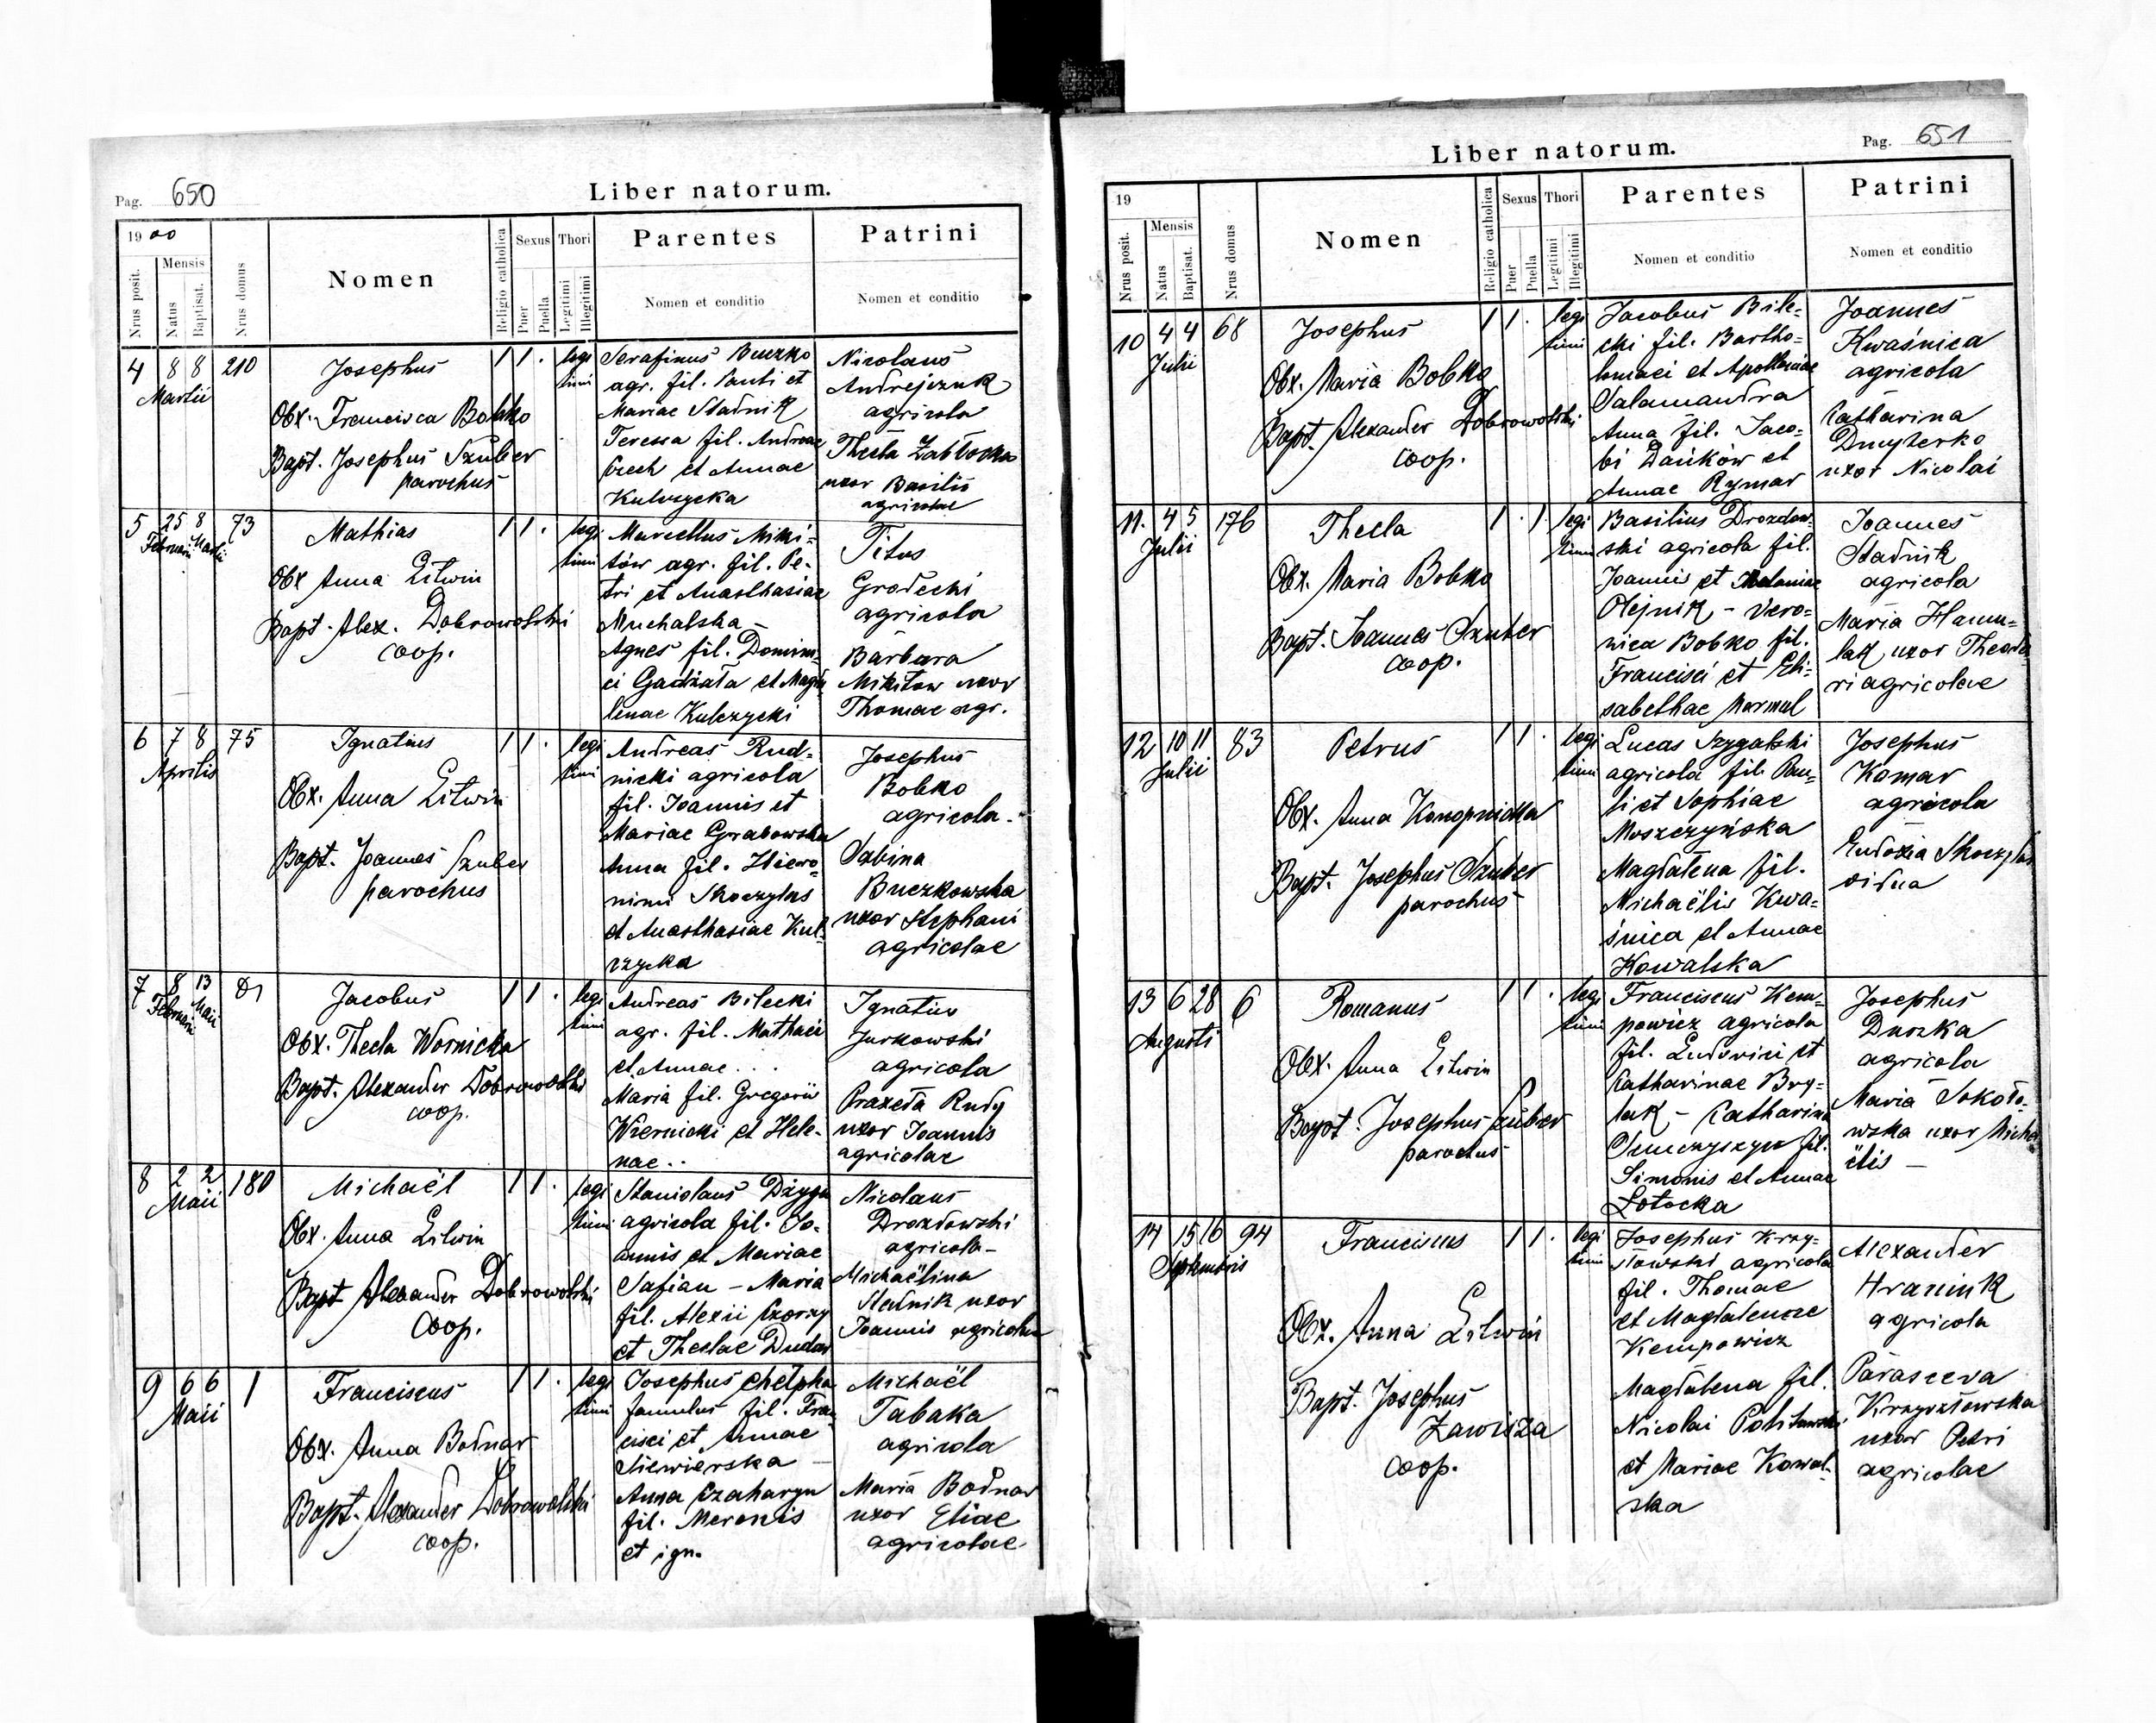 Pag. 650
Liber natorum.
1900
Nrus posit.
Mensis
Natus
Baptisat.
Nrus domus
Nomen
Religio catholica
Sexus
Puer
Puella
Thori
Legitimi
Illegitimi
Parentes
Nomen et conditio
Patrini
Nomen et conditio
4 8 8 210
Martii
Josephus
Obx. Francisca Bobko
Bapt. Josephus Szuber
parochus
1 1 .
legi
timi
Serafinus Buczko
agr. fil. Pauli et
Mariae Stadnik
Teressa fil. Andreae
Czech et Annae
Kulczycka
Nicolaus
Andrejczuk
agricola
Thecla Zabłocka
uxor Basilii
agricolae
5 25 8 73
Februarii Martii
Mathias
Obx Anna Litwin
Bapt. Alex. Dobrowolski
coop.
1 1 .
legi
timi
Marcellus Miki=
tów agr. fil. Pe-
tri et Anasthasiae
Muchalska -
Agnes fil. Domini=
ci Gadżała et Magda
lenae Kulczycki
Titus
Grodecki
agricola
Barbara
Mikitow uxor
Thomae agr.
6 7 8 75
Aprilis
Ignatius
Obx. Anna Litwin
Bapt. Joannes Szuber
parochus
1 1 .
legi
timi
Andreas Rud=
nicki agricola
fil. Joannis et
Mariae Grabowska
Anna fil. Hiero=
nimi Skoczylas
et Anasthasiae Kul=
czycka
Josephus
Bobko
agricola -
Sabina
Buczkowska
uxor Stephani
agricolae
7 8 13 81
Februarii Maii
Jacobus
Obx. Thecla Wornicka
Bapt. Alexander Dobrowolski
coop.
1 1 .
legi
timi
Andreas Bilecki
agr. fil. Mathaei
et Annae . . .
Maria fil. Gregorii
Wiernicki et Hele-
nae . .
Ignatius
Jurkowski
agricola
Praxeda Rudy
uxor Joannis
agricolae
8 2 2 180
Maii
Michaël
Obx. Anna Litwin
Bapt Alexander Dobrowolski
Coop.
1 1 .
legi
timi
Stanislaus Dżyga
agricola fil. Jo-
annis et Mariae
Safian - Maria
fil. Alexii Czorny
et Theclae Dudar
Nicolaus
Drozdowski
agricola -
Michaëlina
Stadnik uxor
Joannis agricolae
9 6 6 1
Maii
Franciscus
Obx. Anna Bodnar
Bapt. Alexander Dobrowolski
coop.
1 1 .
legi
timi
Josephus Chełpka
famulus fil. Fran
cisci et Annae
Siewierska -
Anna Czaharyn
fil. Meronis
et ign.
Michaël
Tabaka
agricola
Maria Bodnar
uxor Eliae
agricolae
Liber natorum.
Pag. 651
19
Nrus posit.
Mensis
Natus
Baptisat.
Nrus domus
Nomen
Religio catholica
Sexus
Puer
Puella
Thori
Legitimi
Illegitimi
Parentes
Nomen et conditio
Patrini
Nomen et conditio
10 4 4 68
Julii
Josephus
Obx. Maria Bobko
Bapt. Alexander Dobrowolski
coop.
1 1 .
legi
timi
Jacobus Bile=
cki fil. Bartho=
lomaei et Apolloniae
Salamandra
Anna fil. Jaco=
bi Dańków et
Annae Rymar
Joannes
Kwaśnica
agricola
Catharina
Dmyterko
uxor Nicolai
11. 4 5 176
Julii
Thecla
Obx. Maria Bobko
Bapt. Joannes Szuber
coop.
1 . 1
legi
timi
Basilius Drozdow-
ski agricola fil.
Joannis et Melaniae
Olejnik - Vero=
nica Bobko fil.
Francisci et Eli=
sabethae Marmul
Joannes
Stadnik
agricola
Maria Hamu=
lak uxor Theodo
ri agricolae
12 10 11 83
Julii
Petrus
Obx. Anna Konopnicka
Bapt. Josephus Szuber
parochus
1 1 .
legi
timi
Lucas Szygalski
agricola fil. Pau=
li et Sophiae
Moszczyńska
Magdalena fil.
Michaëlis Kwa=
śnica et Annae
Kowalska
Josephus
Komar
agricola
Eudoxia Skoczylas
vidua
13 6 28 6
Augusti
Romanus
Obx. Anna Litwin
Bapt. Josephus Szuber
parochus
1 1 .
legi
timi
Franciscus Kem=
powicz agricola
fil. Ludovici et
Catharinae Bry=
lak - Catharina
Semczyszyn fil.
Simonis et Annae
Łotocka
Josephus
Duszka
agricola
Maria Sokoło-
wska uxor Micha
ëlis -
14 15 16 94
Septembris
Franciscus
Obx. Anna Litwin
Bapt. Josephus
Zawisza
coop.
1 1 .
legi
timi
Josephus Krzy-
stowski agricola
fil. Thomae
et Magdalenae
Kempowicz
Magdalena fil.
Nicolai
et Mariae Kowal-
ska
Alexander
Hraniuk
agricola
Parasceva
Krzysztowska
uxor Petri
agricolae